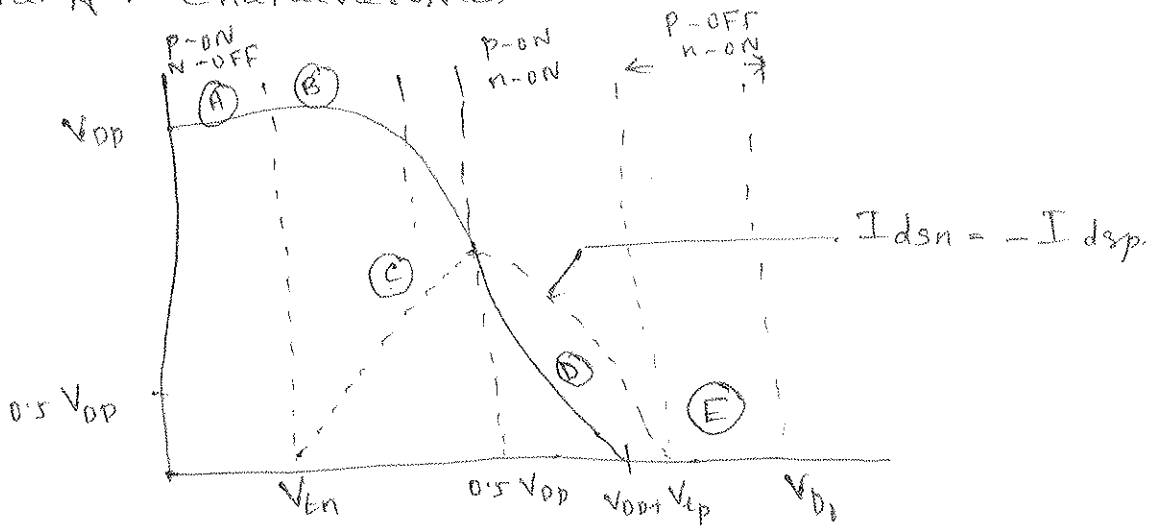 p-ON
N-OFF
p-ON
n-ON
p-OFF
n-ON
A
B
VDD
C
Idsn = -Idsp.
D
E
0.5 VDD
Vtn
0.5 VDD
VDD+ Vtp